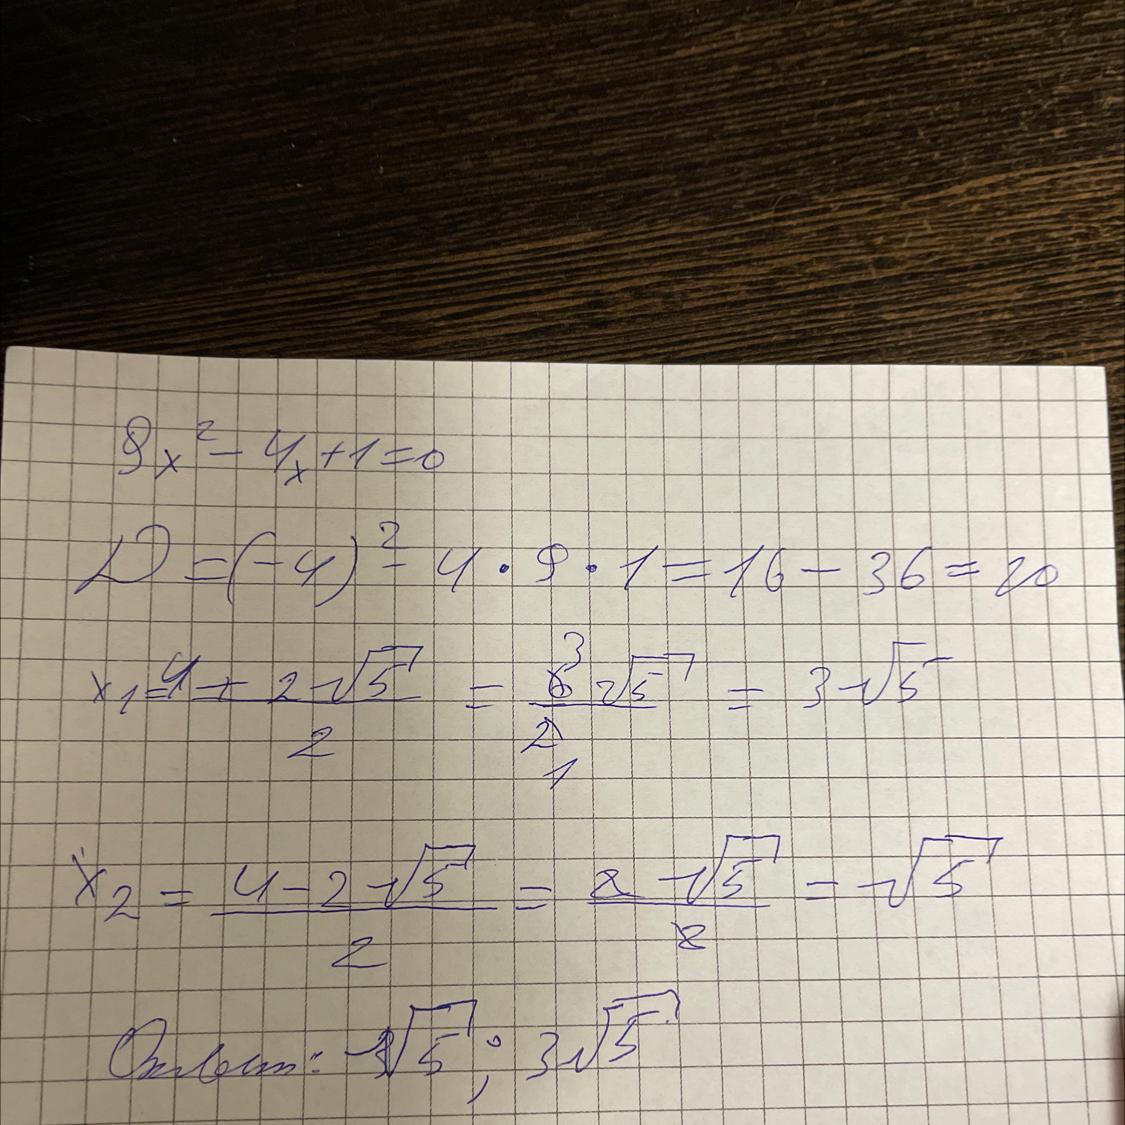 9x² - 4x + 1 = 0
D = (-4)² - 4 · 9 · 1 = 16 - 36 = 20
x₁ = (4 + 2√5)/2 = (6√5)/2 = 3√5
x₂ = (4 - 2√5)/2 = (2√5)/2 = √5
Ответ: √5 ; 3√5